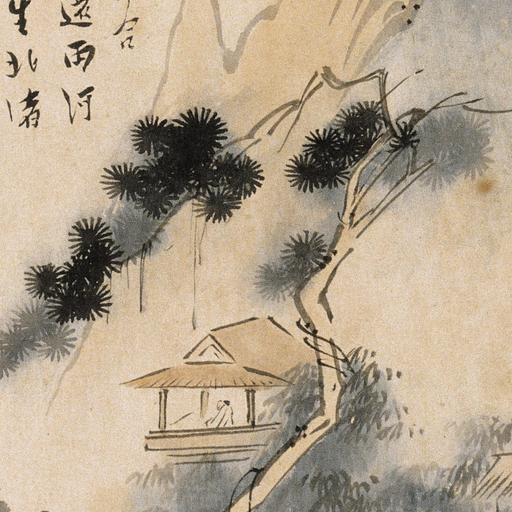 合
遠雨河
生北渚